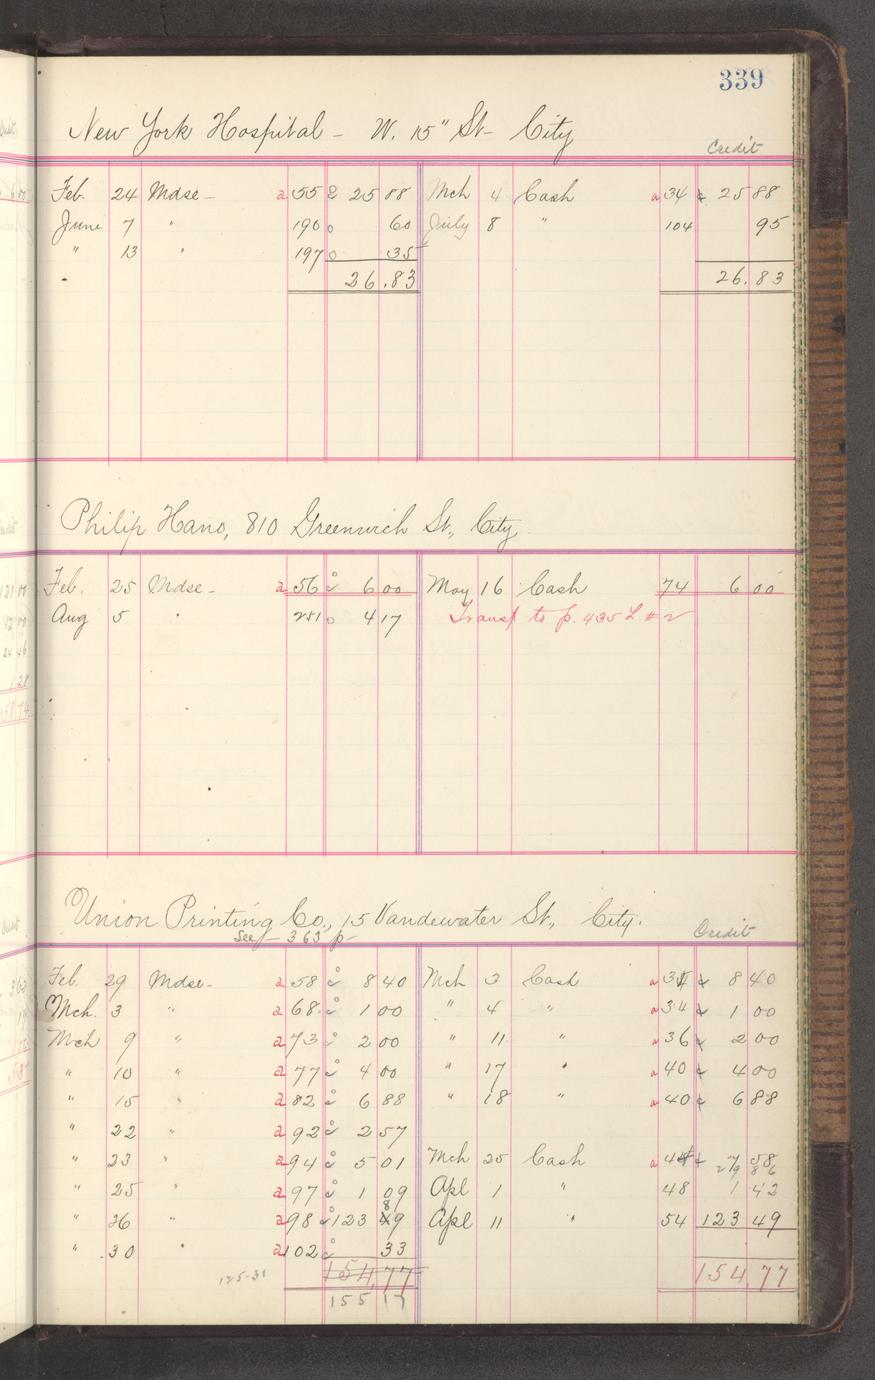 339
New York Hospital - W. 15" St- City
Credit
Feb. 24 Mdse - a 55 25 88 Mch 4 Cash a 34 25 88
June 7 " 190 60 July 8 " 104 95
" 13 " 197 35
26.83 26.83
Philip Hano, 810 Greenwich St., City
Feb. 25 Mdse - a 56 6 00 May 16 Cash 74 6 00
Aug 5 " 281 4 17 Transf to p. 435 L. #2
Union Printing Co., 15 Vandewater St., City.
See - 363 p - Credit
Feb. 29 Mdse - a 58 8 40 Mch 3 Cash a 34 8 40
Mch. 3 " a 68 1 00 " 4 " a 34 1 00
Mch 9 " a 73 2 00 " 11 " a 36 2 00
" 10 " a 77 4 00 " 17 " a 40 4 00
" 15 " a 82 6 88 " 18 " a 40 6 88
" 22 " a 92 2 57
" 23 " a 94 5 01 Mch 25 Cash a 44 7 58
" 25 " a 97 1 09 Apl 1 " 48 1 42
" 26 " a 98 123 49 Apl 11 " 54 123 49
" 30 " a 102 33
154,77 154,77
155 17